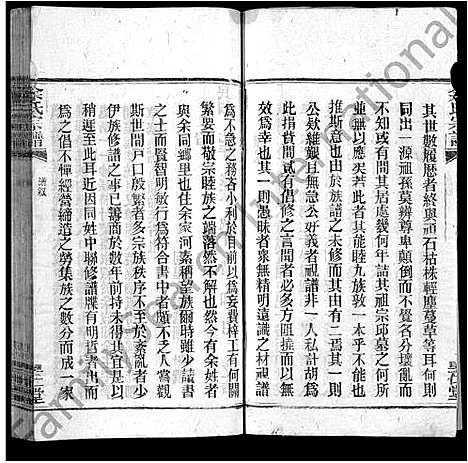 其世數履歷者終與頑石枯株輕塵蔓草等耳何則
同出一源祖孫莫辨尊卑顛倒而不覺各分壞亂而
不知或有問其居處幾何年詰其祖宗邱墓之何所
並無以應矣若此者其能睦九族敦一本乎不能也
推斯意也由於族譜之未修而其由有二焉其一則
公欸維艱且無急公好義者視譜非一人私計胡為
此捐貲間貳有倡修之言聞者必多方阻撓而以
為幸也其一則愚昧者衆無精明遠識之材視譜
為不急之務吝小利於目前以為妄費梓工有何關
繁要而敬宗睦族之端落然不明也然今有余姓者
與余同鄉里也住余家河素稱望族爾時雖少讀書
之士而賢智明敏行為符合書中大義不乏人嘗觀
斯世間戶口殷繁者多宗族秩序不至於紊亂者少
伊族修譜之事已籌商於數年前持未得其宜
稍遲至此耳近因同姓中聯修譜牒有明哲者出而
為之倡不憚經營締造之勞集族之數分而成一家
余氏宗譜
譜敘